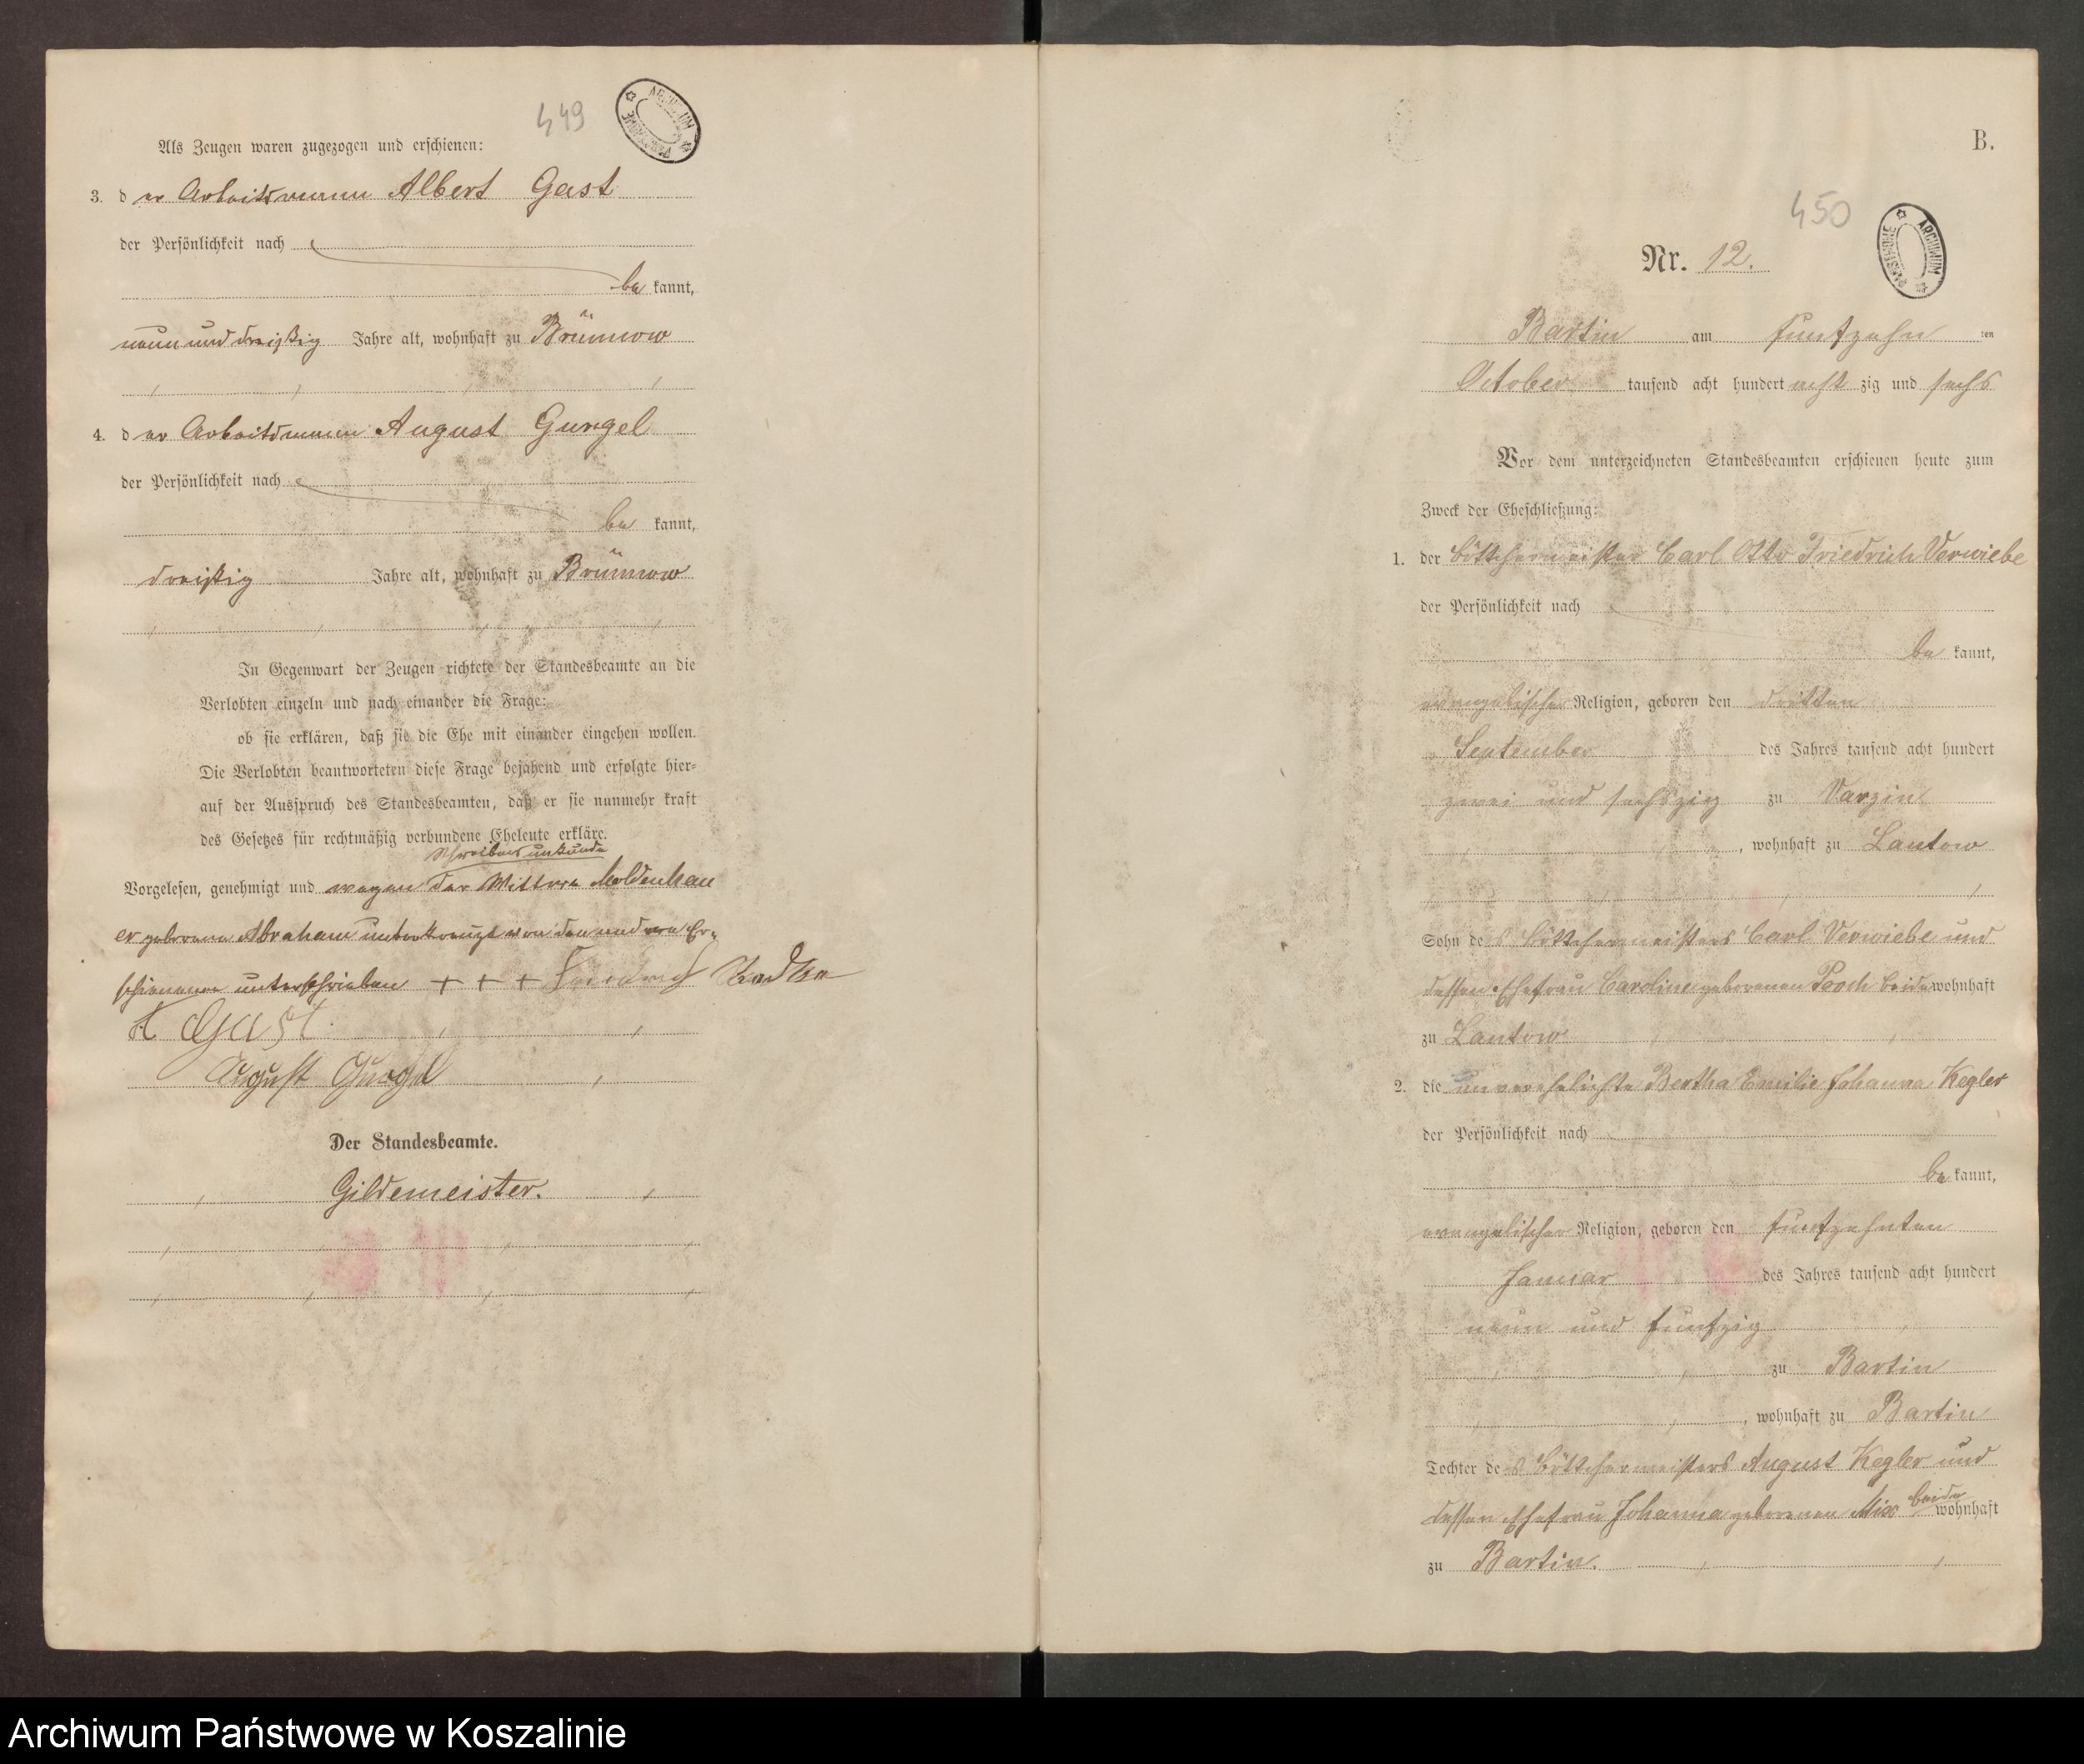 449
ARCHIWUM PAŃSTWOWE
Als Zeugen waren zugezogen und erschienen:
3. der Arbeitsmann Albert Gast
der Persönlichkeit nach
bekannt,
neun und dreißig Jahre alt, wohnhaft zu Brünnow
4. der Arbeitsmann August Gurgel
der Persönlichkeit nach
bekannt,
dreißig Jahre alt, wohnhaft zu Brünnow
In Gegenwart der Zeugen richtete der Standesbeamte an die
Verlobten einzeln und nach einander die Frage:
ob sie erklären, daß sie die Ehe mit einander eingehen wollen.
Die Verlobten beantworteten diese Frage bejahend und erfolgte hier-
auf der Ausspruch des Standesbeamten, daß er sie nunmehr kraft
des Gesetzes für rechtmäßig verbundene Eheleute erkläre.
Schreibensunkunde
Vorgelesen, genehmigt und wegen der Wittwe Moldenhau
er geborene Abraham unterkreuzt von den anderen Er-
schienenen unterschrieben + + + Radtke
A Gast
August Gurgel
Der Standesbeamte.
Gildemeister.
B.
450
ARCHIWUM PAŃSTWOWE
Nr. 12.
Bartin am funfzehn ten
October tausend acht hundert acht zig und sechs
Vor dem unterzeichneten Standesbeamten erschienen heute zum
Zweck der Eheschließung:
1. der Böttchermeister Carl Otto Friedrich Verwiebe
der Persönlichkeit nach
bekannt,
evangelischer Religion, geboren den dritten
September des Jahres tausend acht hundert
zwei und sechszig zu Varzin
, wohnhaft zu Lantow
Sohn des Böttchermeisters Carl Verwiebe und
dessen Ehefrau Caroline geborenen Pooch beide wohnhaft
zu Lantow
2. die unverehelichte Bertha Emilie Johanna Kegler
der Persönlichkeit nach
bekannt,
evangelischer Religion, geboren den funfzehnten
Januar des Jahres tausend acht hundert
neun und funfzig
zu Bartin
, wohnhaft zu Bartin
Tochter des Böttchermeisters August Kegler und
dessen Ehefrau Johanna geborenen Mix beide wohnhaft
zu Bartin.
Archiwum Państwowe w Koszalinie